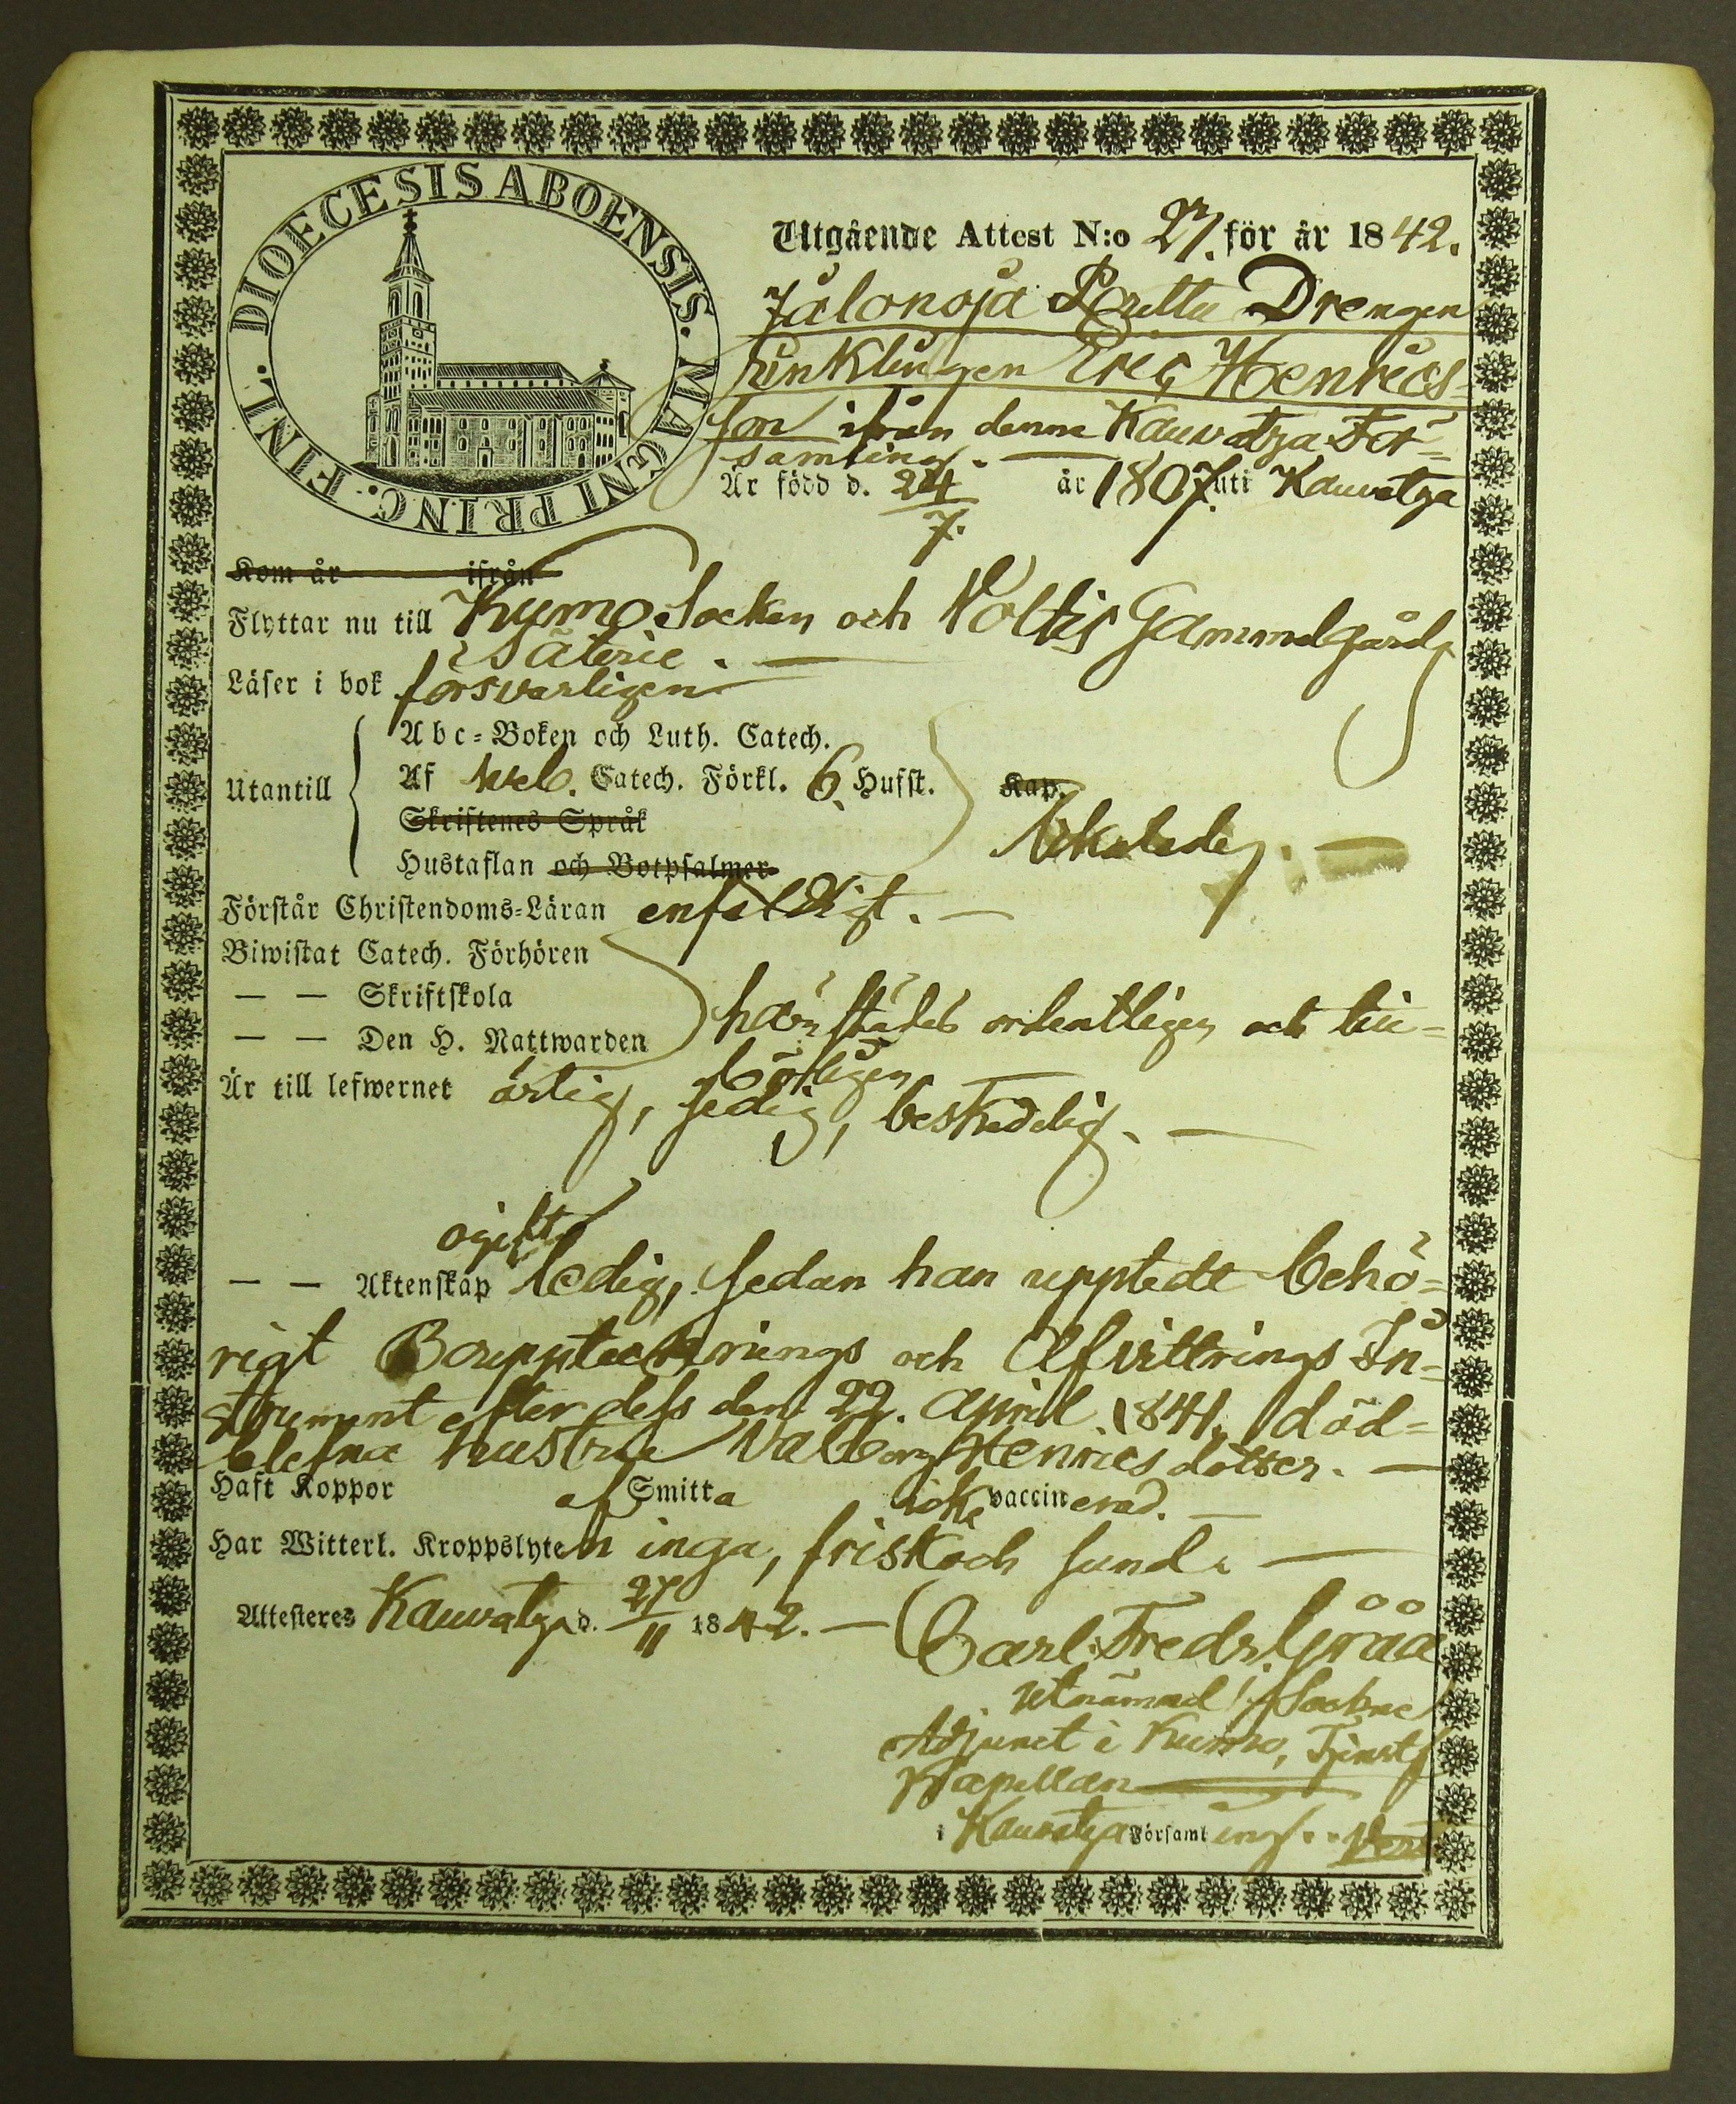 DIOECESIS ABOENSIS. MAGNI PRINC. FINL.
Utgående Attest N:o 27. för år 1842.
Jalonoja Drengen
Enklingen Eric Henrics-
son ifrån denna Kauvatza För-
samling.
Är född d. 24/7. år 1807. uti Kauvatza
Kom år ifrån
Flyttar nu till Kymo Socken och Voltis Gammelgårds
Säterie.
Läser i bok försvarligen
Utantill
Abc-Boken och Luth. Catech.
Af Catech. Förkl. 6. Hufst. Kap.
Skriftenes Språk
Hustaflan och Botpsalmer
Förstår Christendoms-Läran enfaldigt.
Biwistat Catech. Förhören
— — Skriftskola
— — Den H. Nattwarden
härstädes ordentligen och til-
börligen
Är till lefwernet ärlig, sedig, beskedelig.
ogift
— — Aktenskap ledig, sedan han upptedt behö-
rigt Boupptecknings och Afvittrings In-
strument efter dess den 22. April 1841. död-
blefna hustru Valborg Henrics dotter.
Haft Koppor af Smitta icke vaccinerad.
Har Witterl. Kroppslyten inga, frisk och sund.
Attesteras Kauvatza d. 27/11 1842. Carl Fredr. Gråå
utnämnd Sockne
Adjunct i Kumo, Tjenstf
Kapellan
i Kauvatza Församling.